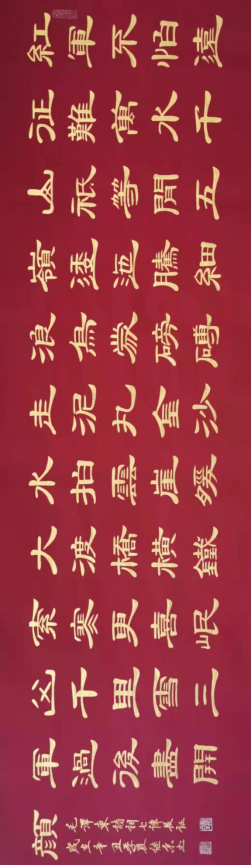 紅軍不怕遠
征難萬水千
山秖等閒五
嶺逶迤騰細
浪烏蒙磅礡
走泥丸金沙
水拍雲崖煖
大渡橋橫鐵
索寒更喜岷
山千里雪三
軍過後盡開
顏
毛澤東詩詞七律長征
歲在辛丑